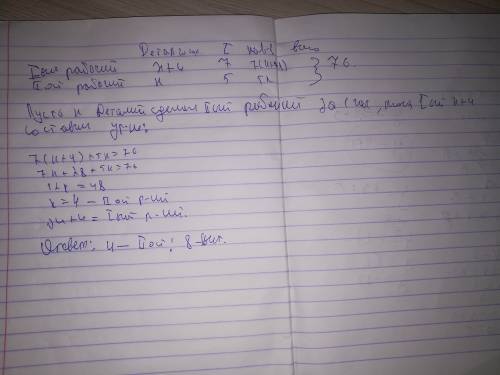 Деталь/час t кол-во всего
I-ый рабочий x+4 7 7(x+4)
II-ой рабочий x 5 5x } 76
Пусть x деталей сделал II-ой рабочий за 1 час, тогда I-ый x+4
составим ур-ние:
7(x+4)+5x=76
7x+28+5x=76
12x=48
x=4 – II-ой р-чий
x+4 = I-ый р-чий.
Ответ: 4 – II-ой; 8-